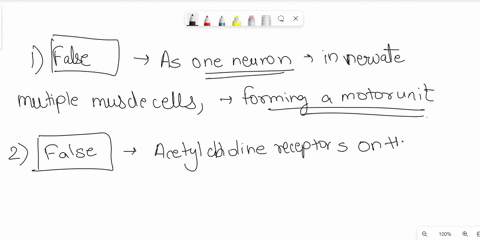 1) False → As one neuron → innervate
multiple muscle cells, → forming a motor unit
2) False → Acetylcholine receptors on th
100%